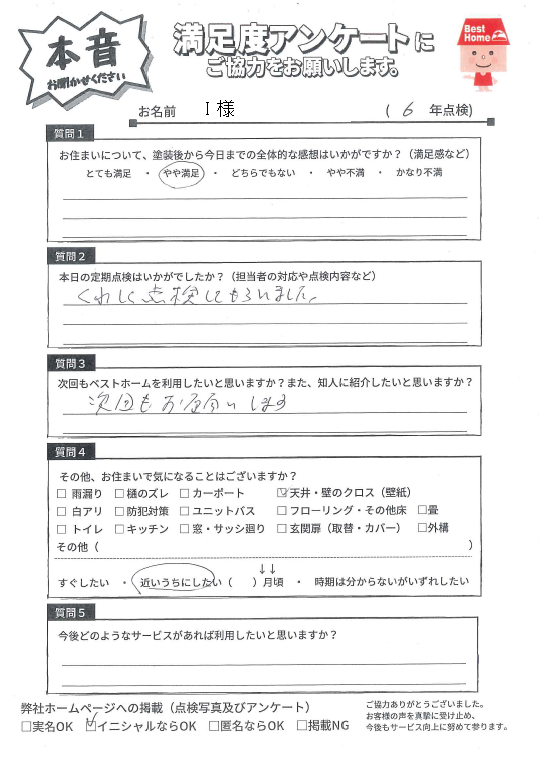 本音
お聞かせください
満足度アンケートに
ご協力をお願いします。
Best Home
お名前 I 様 ( 6 年点検)
質問1
お住まいについて、塗装後から今日までの全体的な感想はいかがですか？（満足感など）
とても満足 ・ やや満足 ・ どちらでもない ・ やや不満 ・ かなり不満
質問2
本日の定期点検はいかがでしたか？（担当者の対応や点検内容など）
くわしく点検してもらいました。
質問3
次回もベストホームを利用したいと思いますか？また、知人に紹介したいと思いますか？
次回もお願いします
質問4
その他、お住まいで気になることはございますか？
□ 雨漏り □ 樋のズレ □ カーポート ☑ 天井・壁のクロス（壁紙）
□ 白アリ □ 防犯対策 □ ユニットバス □ フローリング・その他床 □畳
□ トイレ □ キッチン □ 窓・サッシ廻り □ 玄関扉（取替・カバー） □外構
その他（ ）
↓↓
すぐしたい ・ 近いうちにしたい（ ）月頃 ・ 時期は分からないがいずれしたい
質問5
今後どのようなサービスがあれば利用したいと思いますか？
弊社ホームページへの掲載（点検写真及びアンケート）
□実名OK ☑イニシャルならOK □匿名ならOK □掲載NG
ご協力ありがとうございました。
お客様の声を真摯に受け止め、
今後もサービス向上に努めて参ります。